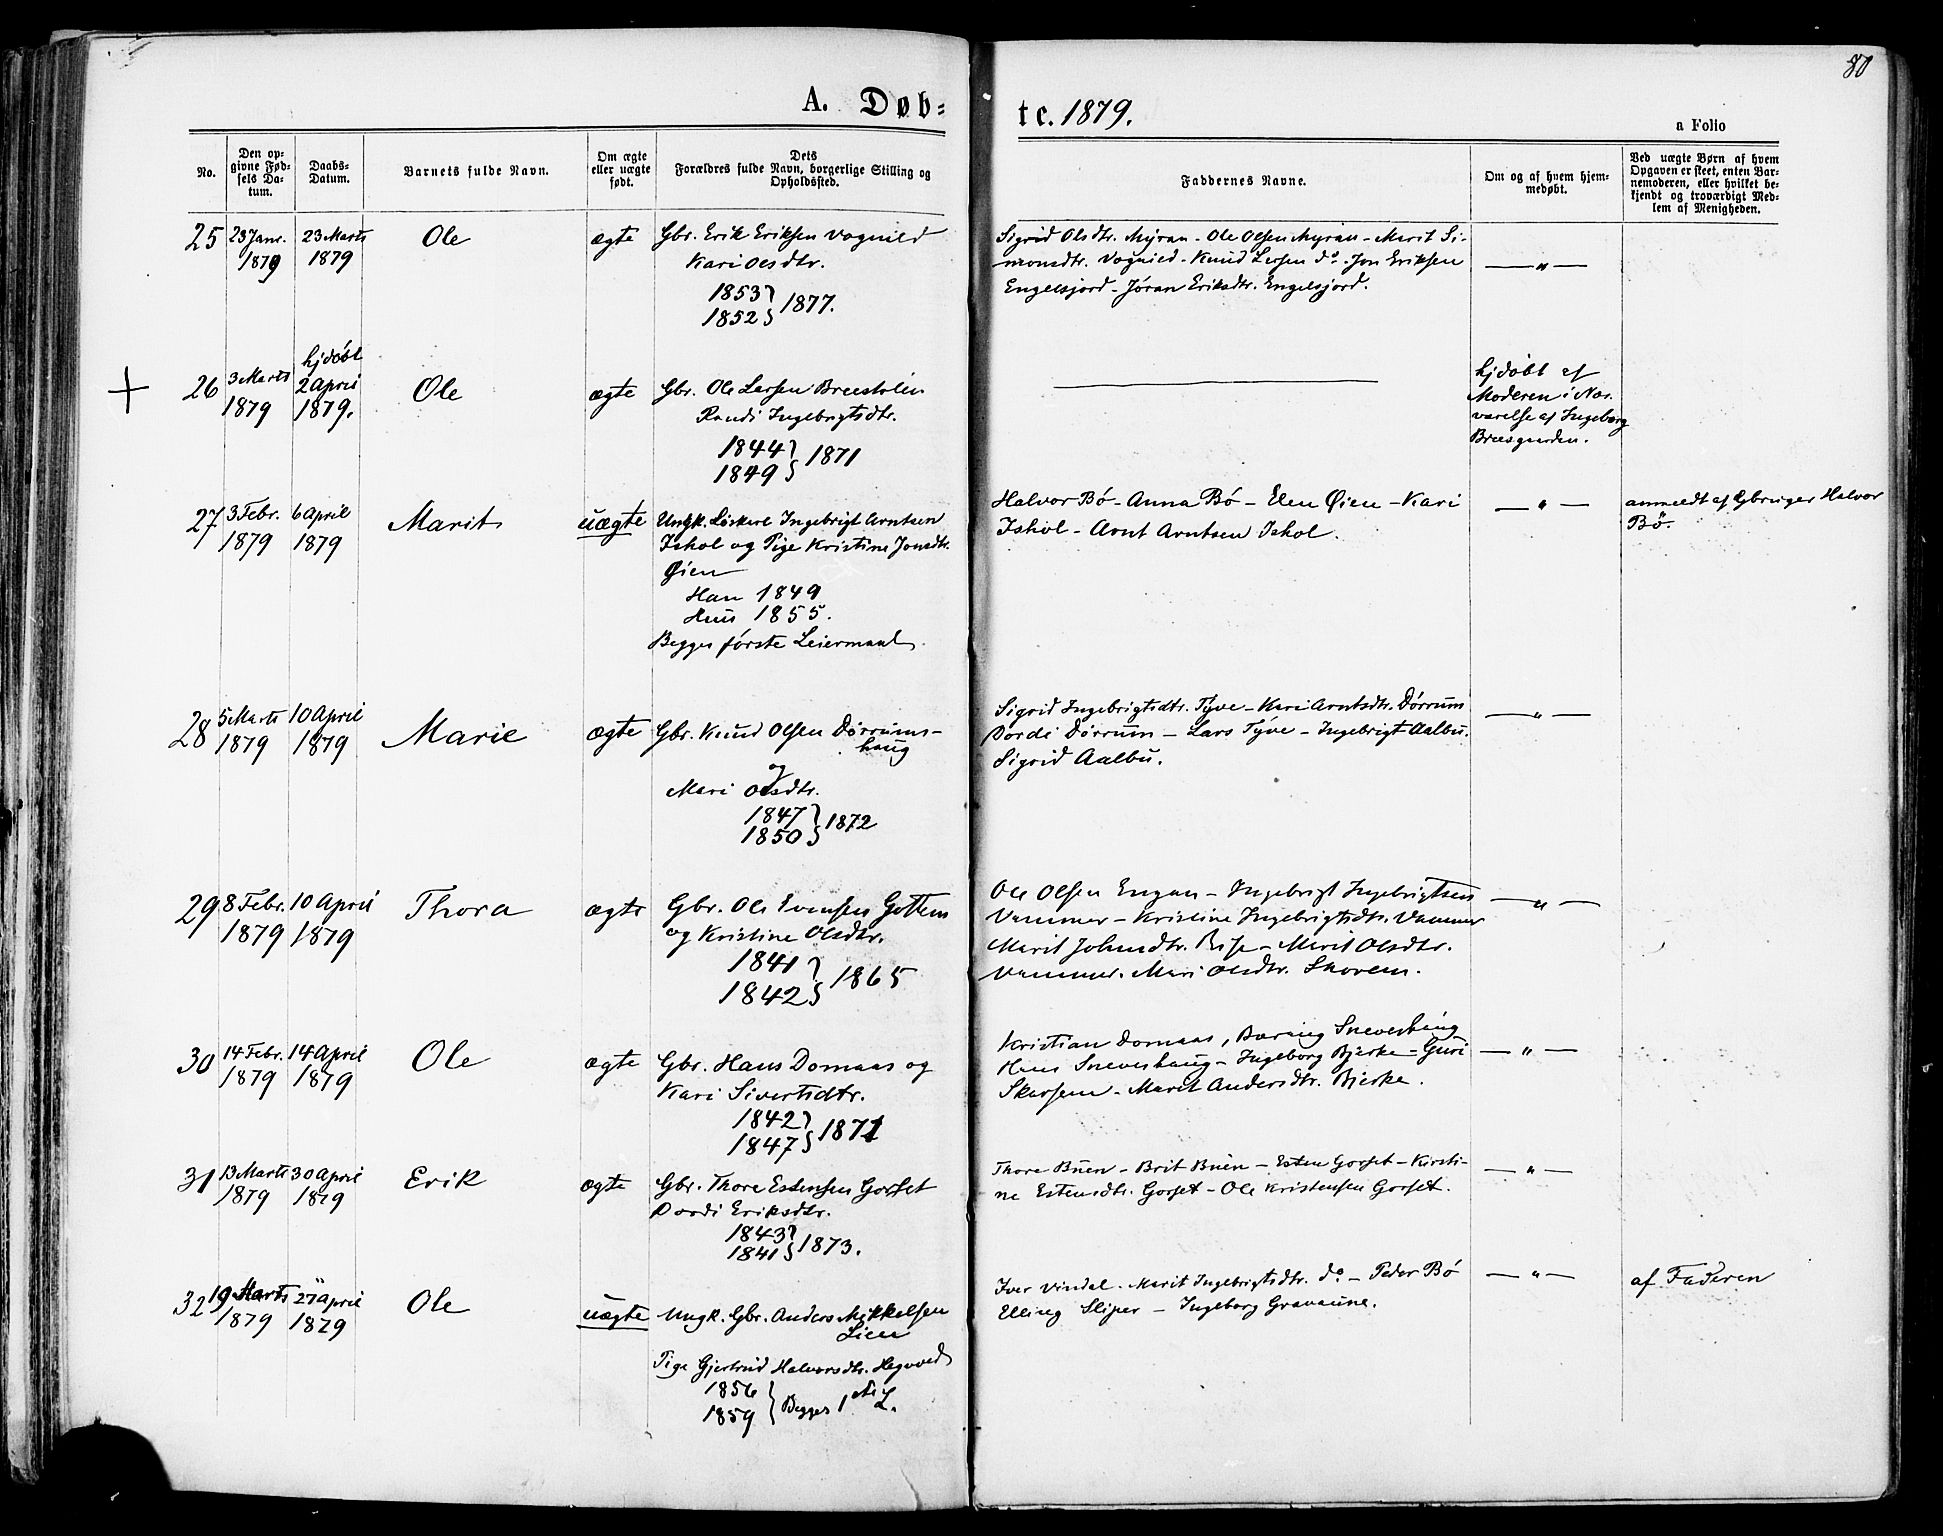 80
A. Døb=
te. 1879.
a Folio
No.
Den op-
givne Fød-
sels Da-
tum.
Daabs-
Datum.
Barnets fulde Navn.
Om ægte
eller uægte
født.
Dets
Forældres fulde Navn, borgerlige Stilling og
Opholdssted.
Faddernes Navne.
Om og af hvem hjem-
medøbt.
Ved uægte Børn af hvem
Opgaven er skeet, enten Bar-
nemoderen, eller hvilket be-
kjendt og troværdigt Med-
lem af Menigheden.
25
23 Janr.
1879
23 Marts
1879
Ole
ægte
Gbr. Erik Eriksen Vognild
Kari Olsdtr.
1853
1852 } 1877.
Sigrid Olsdtr. Myran - Ole Olsen Myran - Marit Si-
monsdtr. Vognild - Knud Larsen do - Jon Eriksen
Engelsjord - Jøran Eriksdtr. Engelsjord.
— " —
26
3 Marts
1879
hjdøbt
2 April
1879.
Ole
ægte
Gbr. Ole Larsen Breesholen
Randi Ingebrigtsdtr.
1844
1849 } 1871
hjdøbt af
Moderen i Nær-
værelse af Ingeborg
Breesgarden.
27
3 Febr.
1879
6 April
1879
Marit
uægte
Ungk. Løskerl Ingebrigt Arntsen
Ishol og Pige Kristine Jonsdtr.
Øien
Han 1849
Hun 1855.
Begges første Leiermaal.
Halvor Bø - Anna Bø - Elen Øien - Kari
Ishol - Arnt Arntsen Ishol.
— " —
anmeldt af Gbruger Halvor
Bø.
28
5 Marts
1879
10 April
1879
Marie
ægte
Gbr. Knud Olsen Dørrums-
haug
og
Mari Olsdtr.
1847
1850 } 1872
Sigrid Ingebrigtsdtr. Tyve - Kari Arntsdtr. Dørrum
Dordi Dørrum - Lars Tyve - Ingebrigt Aalbu.
Sigrid Aalbu.
— " —
29
8 Febr.
1879
10 April
1879
Thora
ægte
Gbr. Ole Evensen Gottem
og Kristine Olsdtr.
1841
1842 } 1865
Ole Olsen Engan - Ingebrigt Ingebrigtsen
Vammer - Kristine Ingebrigtsdtr. Vammer
Marit Johnsdtr. Rise - Marit Olsdtr.
Vammer. Mari Olsdtr. Skorem.
— " —
30
14 Febr.
1879
14 April
1879
Ole
ægte
Gbr. Hans Domaas og
Kari Sivertsdtr.
1842
1847 } 1871
Kristian Domaas, Sneveshaug
Sneveshaug - Ingeborg Bjerke - Guri
Skarsem - Marit Andersdtr. Bjerke.
— " —
31
13 Marts
1879
30 April
1879
Erik
ægte
Gbr. Thore Estensen Gorset
Dordi Eriksdtr.
1843
1841 } 1873.
Thore Buen - Brit Buen - Esten Gorset - Kirsti-
ne Estensdtr. Gorset - Ole Kristensen Gorset.
— " —
32
19 Marts
1879
27 April
1879
Ole
uægte
Ungk. Gbr. Anders Mikkelsen
Lien
Pige Gjertrud Halvorsdtr. Hegvold
1856
1859 } Begges 1ste L.
Iver Vindal. Marit Ingebrigtsdtr. do - Peder Bø
Elling Sliper - Ingeborg Gravaune.
— " —
af Faderen